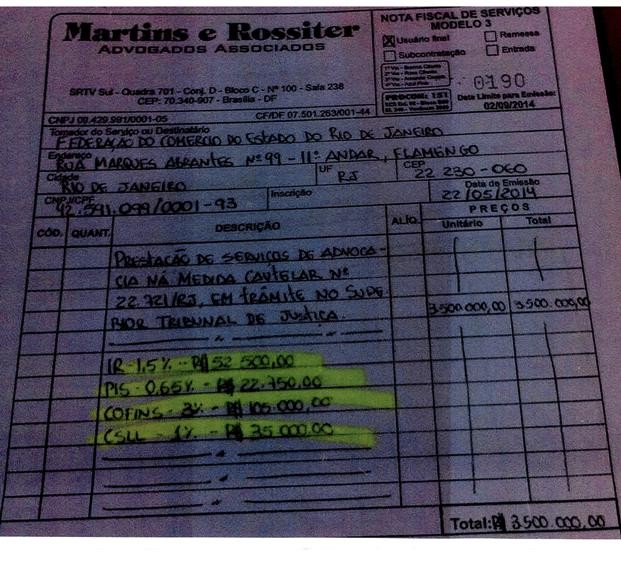 Martins e Rossiter
ADVOGADOS ASSOCIADOS
SRTV Sul - Quadra 701 - Conj. D - Bloco C - Nº 100 - Sala 238
CEP: 70.340-907 - Brasília - DF
CNPJ 09.429.991/0001-05 CF/DF 07.501.263/001-44
NOTA FISCAL DE SERVIÇOS
MODELO 3
X Usuário final Remessa
Subcontratação Entrada
0190
Data Limite para Emissão:
02/09/2014
Tomador do Serviço ou Destinatário
FEDERAÇÃO DO COMERCIO DO ESTADO DO RIO DE JANEIRO
Endereço
RUA MARQUES ABRANTES Nº 99 - 11º ANDAR, FLAMENGO
Cidade UF CEP
RIO DE JANEIRO RJ 22 230-060
CNPJ/CPF Inscrição Data de Emissão
42.591.099/0001-93 22/05/2014
CÓD. QUANT. DESCRIÇÃO ALÍQ. PREÇOS
Unitário Total
PRESTAÇÃO DE SERVIÇOS DE ADVOCA-
CIA NA MEDIDA CAUTELAR Nº
22.721/RJ, EM TRÂMITE NO SUPE 3.500.000,00 3.500.000,00
RIOR TRIBUNAL DE JUSTIÇA.
IR - 1,5% - R$ 52 500,00
PIS - 0,65% - R$ 22.750,00
COFINS - 3% - R$ 105.000,00
CSLL - 1% - R$ 35.000,00
Total: R$ 3.500.000,00